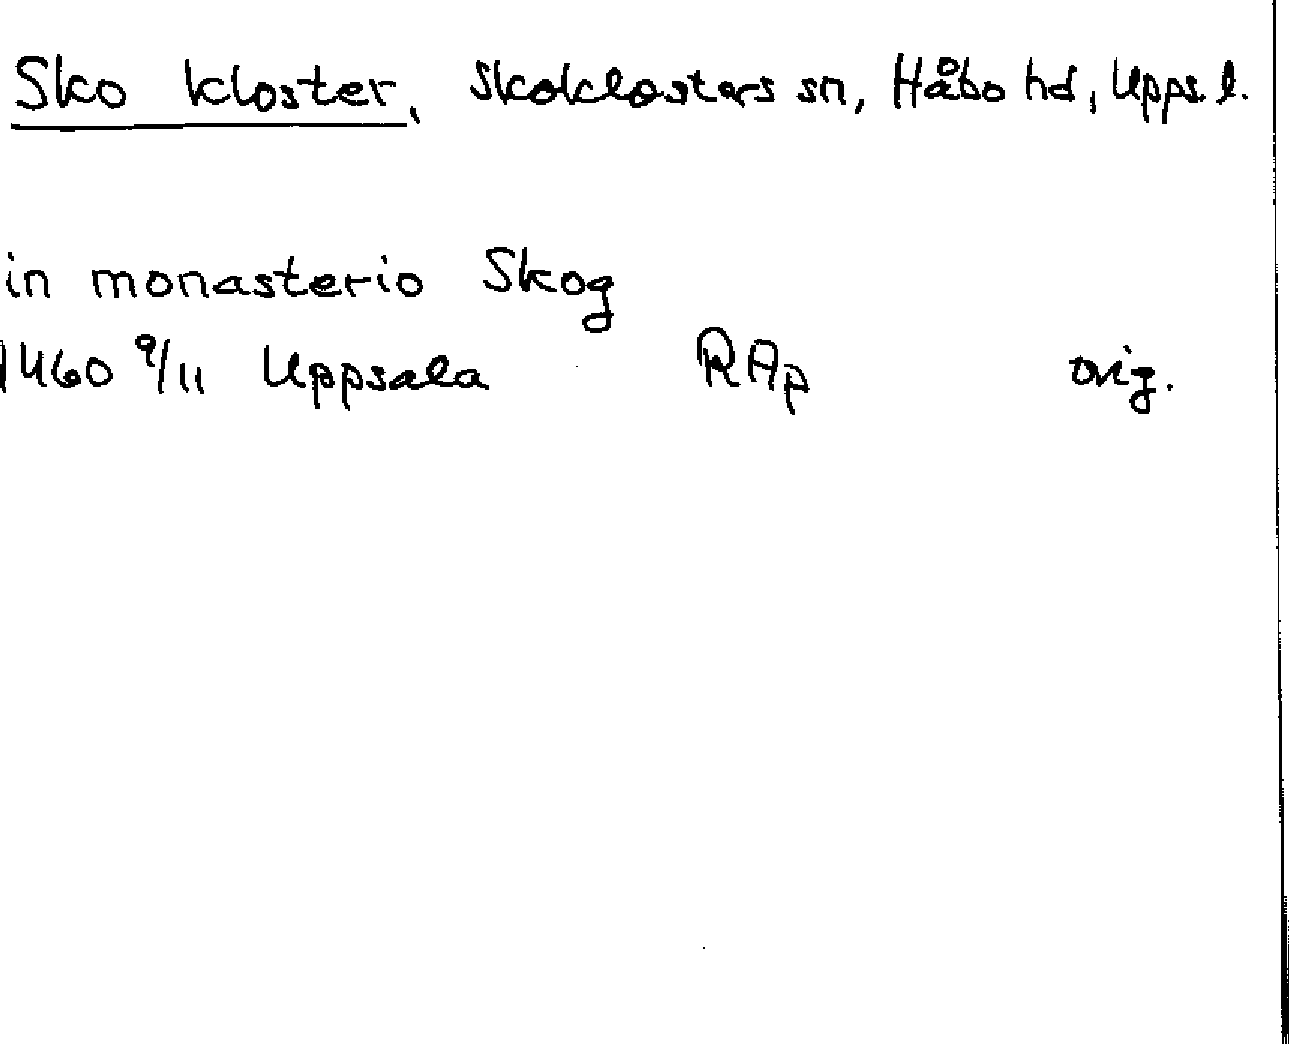 Sko kloster, Skoklosters sn, Håbo hd, Upps. l.
in monasterio Skog
1460 9/11 Uppsala RAp orig.